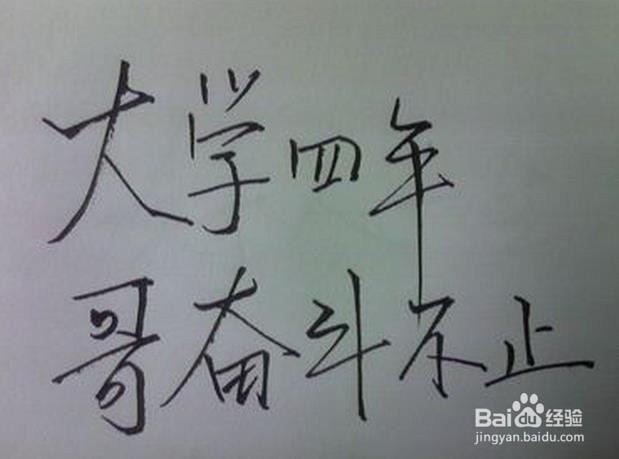 大学四年
哥奋斗不止
Baidu经验
jingyan.baidu.com